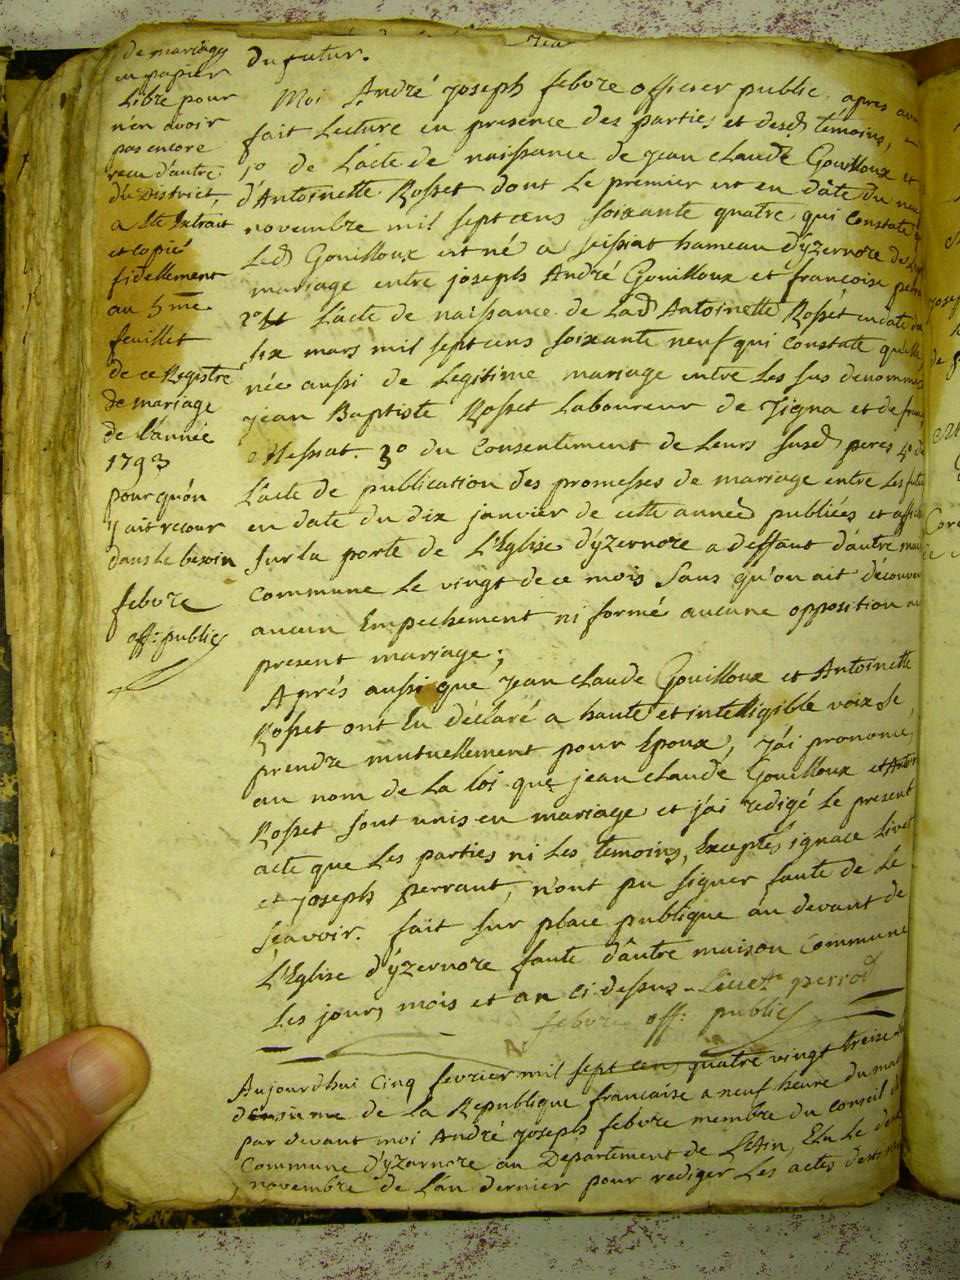 de mariage
en papier
Libre pour
n'en avoir
pas encore
reçu d'autre
du District,
a été Extrait
et copié
fidellement
au 5me
feuillet
de ce Registre
de mariage
de l'année
1793
pour qu'on
y ait recour
dans le besoin
febvre
off: public
du futur.
Moi André joseph febvre officier public, apres avoir
fait Lecture en presence des parties et desd temoins,
1o de L'acte de naissance de jean claude Gouilloux et
d'Antoinette Rosset dont Le premier est en dâte du
novembre mil sept cens soixante quatre qui Constate
Led Gouilloux est né a seissiat hameau d'yzernore de
mariage entre joseph André Gouilloux et francoise
2o L'acte de naissance de Lad Antoinette Rosset en date du
six mars mil sept cens soixante neuf qui Constate
née aussi de Legitime mariage entre Les sus denommés
jean Baptiste Rosset Laboureur de Tigna et de
Messiat. 3o du Consentement de Leurs susd peres 4o de
L'acte de publication des promesses de mariage entre Les
en date du dix janvier de cette année publiées et
sur la porte de L'Eglise d'yzernore a deffaut d'autre
commune Le vingt de ce mois sans qu'on ait découvert
aucun Empechement ni formé aucune opposition au
present mariage;
Aprés aussi que jean claude Gouilloux et Antoinette
Rosset ont Eu déclaré a haute et intelligible voix se
prendre mutuellement pour Epoux, j'ai prononcé
au nom de La Loi que jean claude Gouilloux et
Rosset sont unis en mariage et j'ai redigé Le present
acte que Les parties ni Les temoins, Exceptés ignace Livet
et joseph perrant, n'ont pu signer faute de Le
sçavoir. fait sur place publique au devant de
L'Eglise d'yzernore faute d'âutre maison Commune
Les jours mois et an ci dessus
febvre off: public
Aujourdhui Cinq fevrier mil sept cen quatre vingt treize
deuxieme de La Republique francaise a neuf heure du
par devant moi André joseph febvre membre du Conseil
Commune d'yzernore au Departement de L'Ain, Elu Le
novembre de L'an dernier pour rediger Les actes